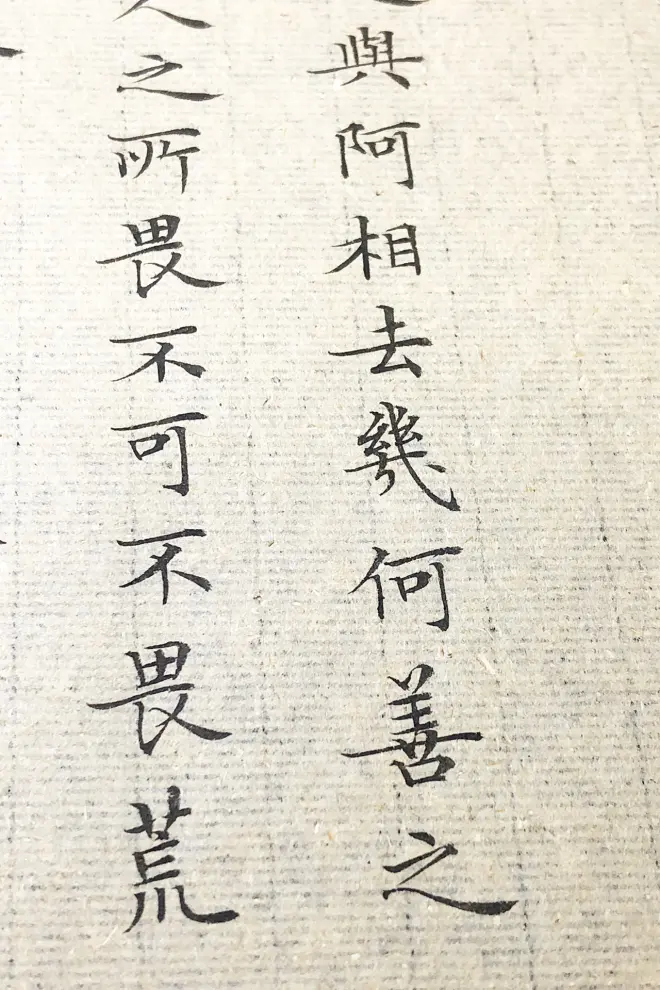 與阿相去幾何善之
人之所畏不可不畏荒